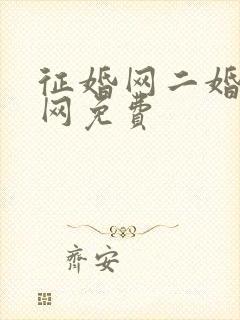 征婚网二婚
网免费
齐安